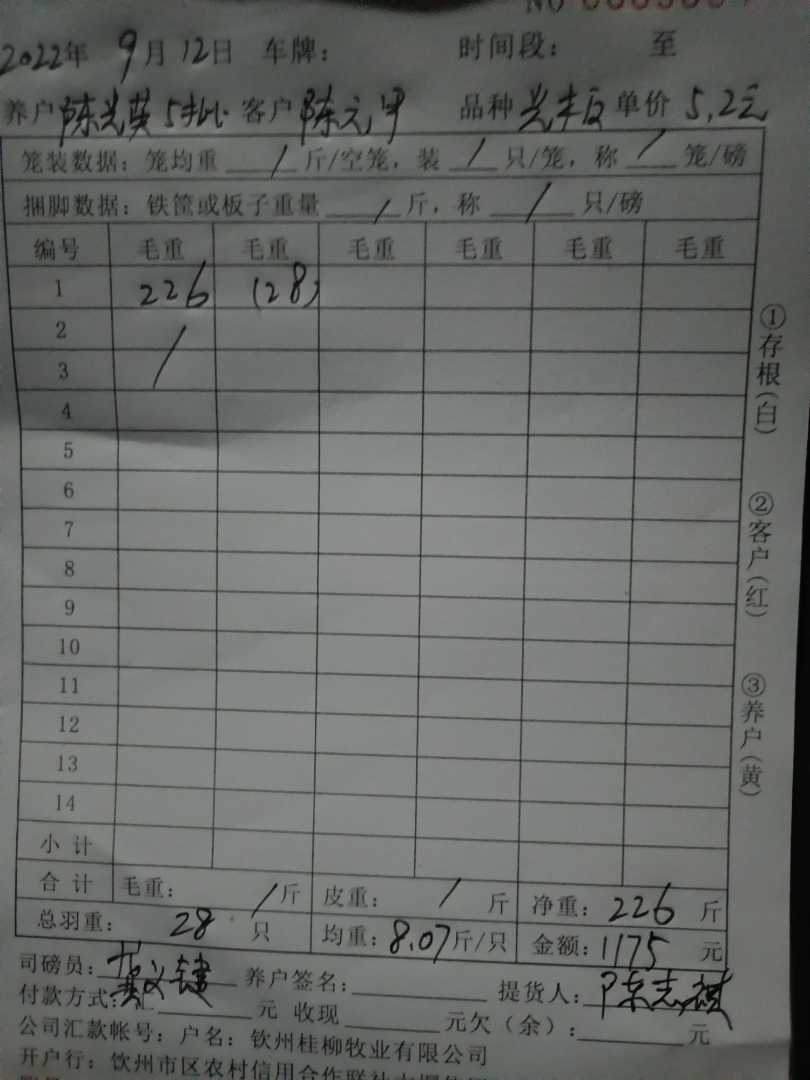 2022年 9月 12日 车牌： 时间段： 至
养户 陈光英 5批 客户 陈元甲 品种 单价 5.2元
笼装数据：笼均重 / 斤/空笼，装 / 只/笼，称 / 笼/磅
捆脚数据：铁筐或板子重量 / 斤，称 / 只/磅
编号 毛重 毛重 毛重 毛重 毛重 毛重
1 226 (28)
2 /
3
4
5
6
7
8
9
10
11
12
13
14
小计
合计 毛重： / 斤 皮重： / 斤 净重：226 斤
总羽重： 28 只 均重：8.07斤/只 金额：1175 元
司磅员： 养户签名： 提货人：陈志斌
付款方式：汇 元 收现 元欠（余）： 元
公司汇款帐号：户名：钦州桂柳牧业有限公司
开户行：钦州市区农村信用合作联社
①存根(白)
②客户(红)
③养户(黄)